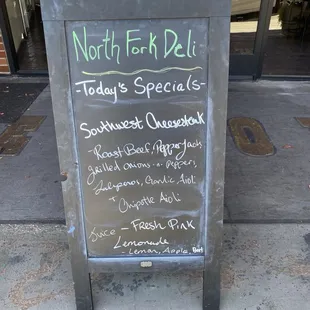 North Fork Deli
-Today's Specials-
Southwest Cheesesteak
-Roast Beef, Pepper Jack,
grilled onions -n- peppers,
Jalapenos, Garlic Aioli
+ Chipotle Aioli
Juice - Fresh Pink
Lemonade
- Lemon, Apple, Beet